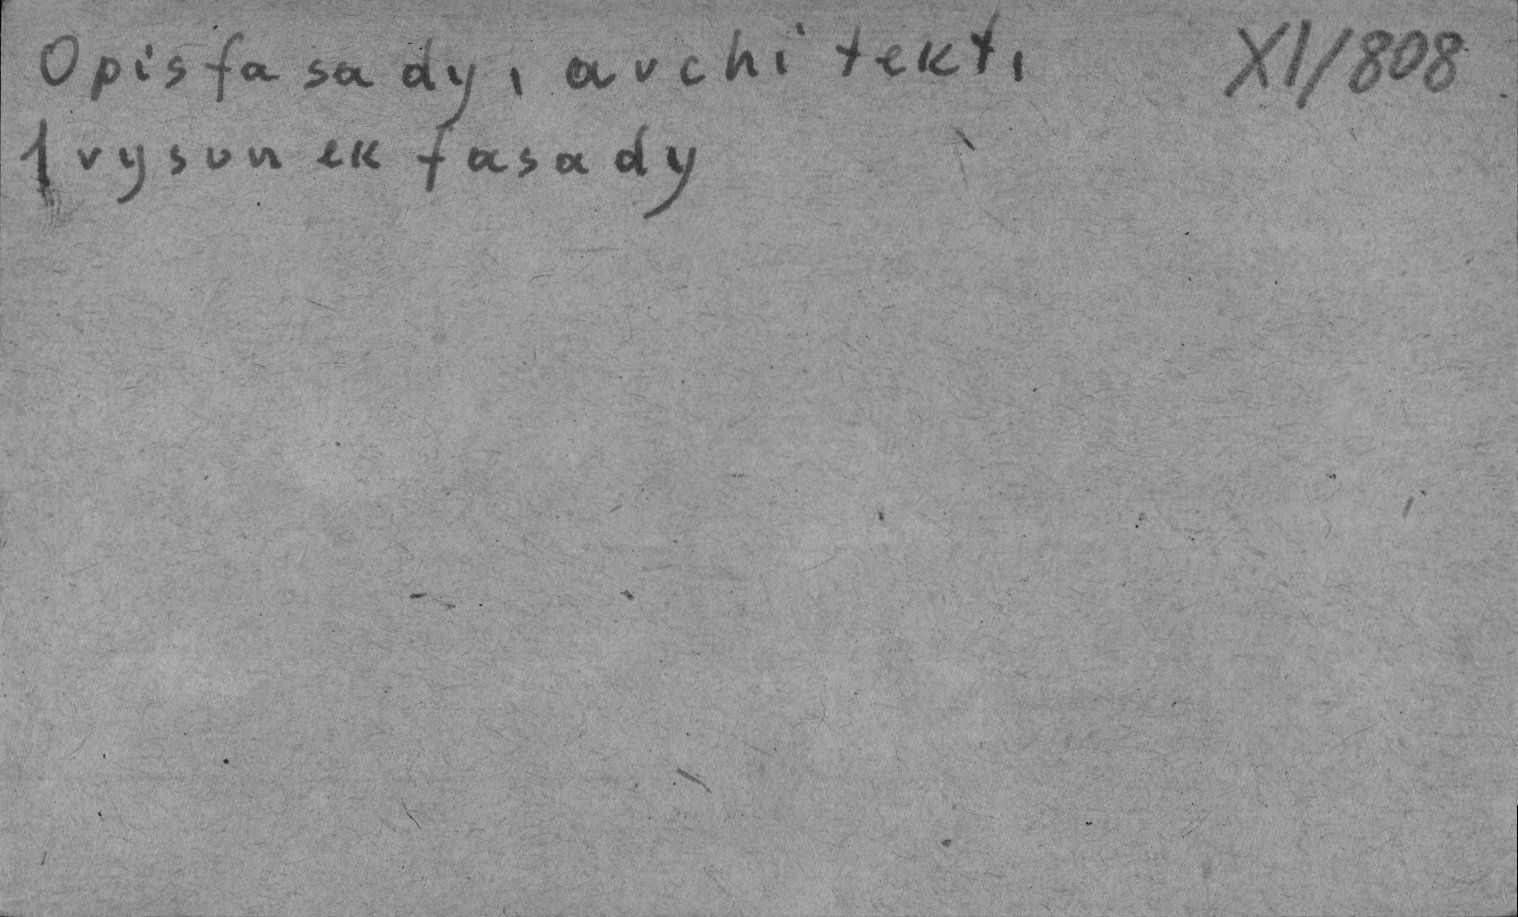 Opis fasady, architekt, XI/808
1 rysunek fasady